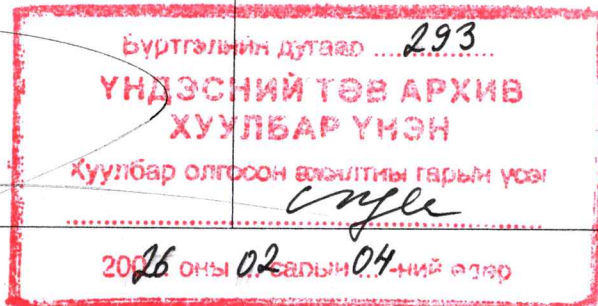 Бүртгэлийн дугаар ....293....
ҮНДЭСНИЙ ТӨВ АРХИВ
ХУУЛБАР ҮНЭН
Хуулбар олгосон ажилтны гарын үсэг
2026 оны 02 сарын 04-ний өдөр